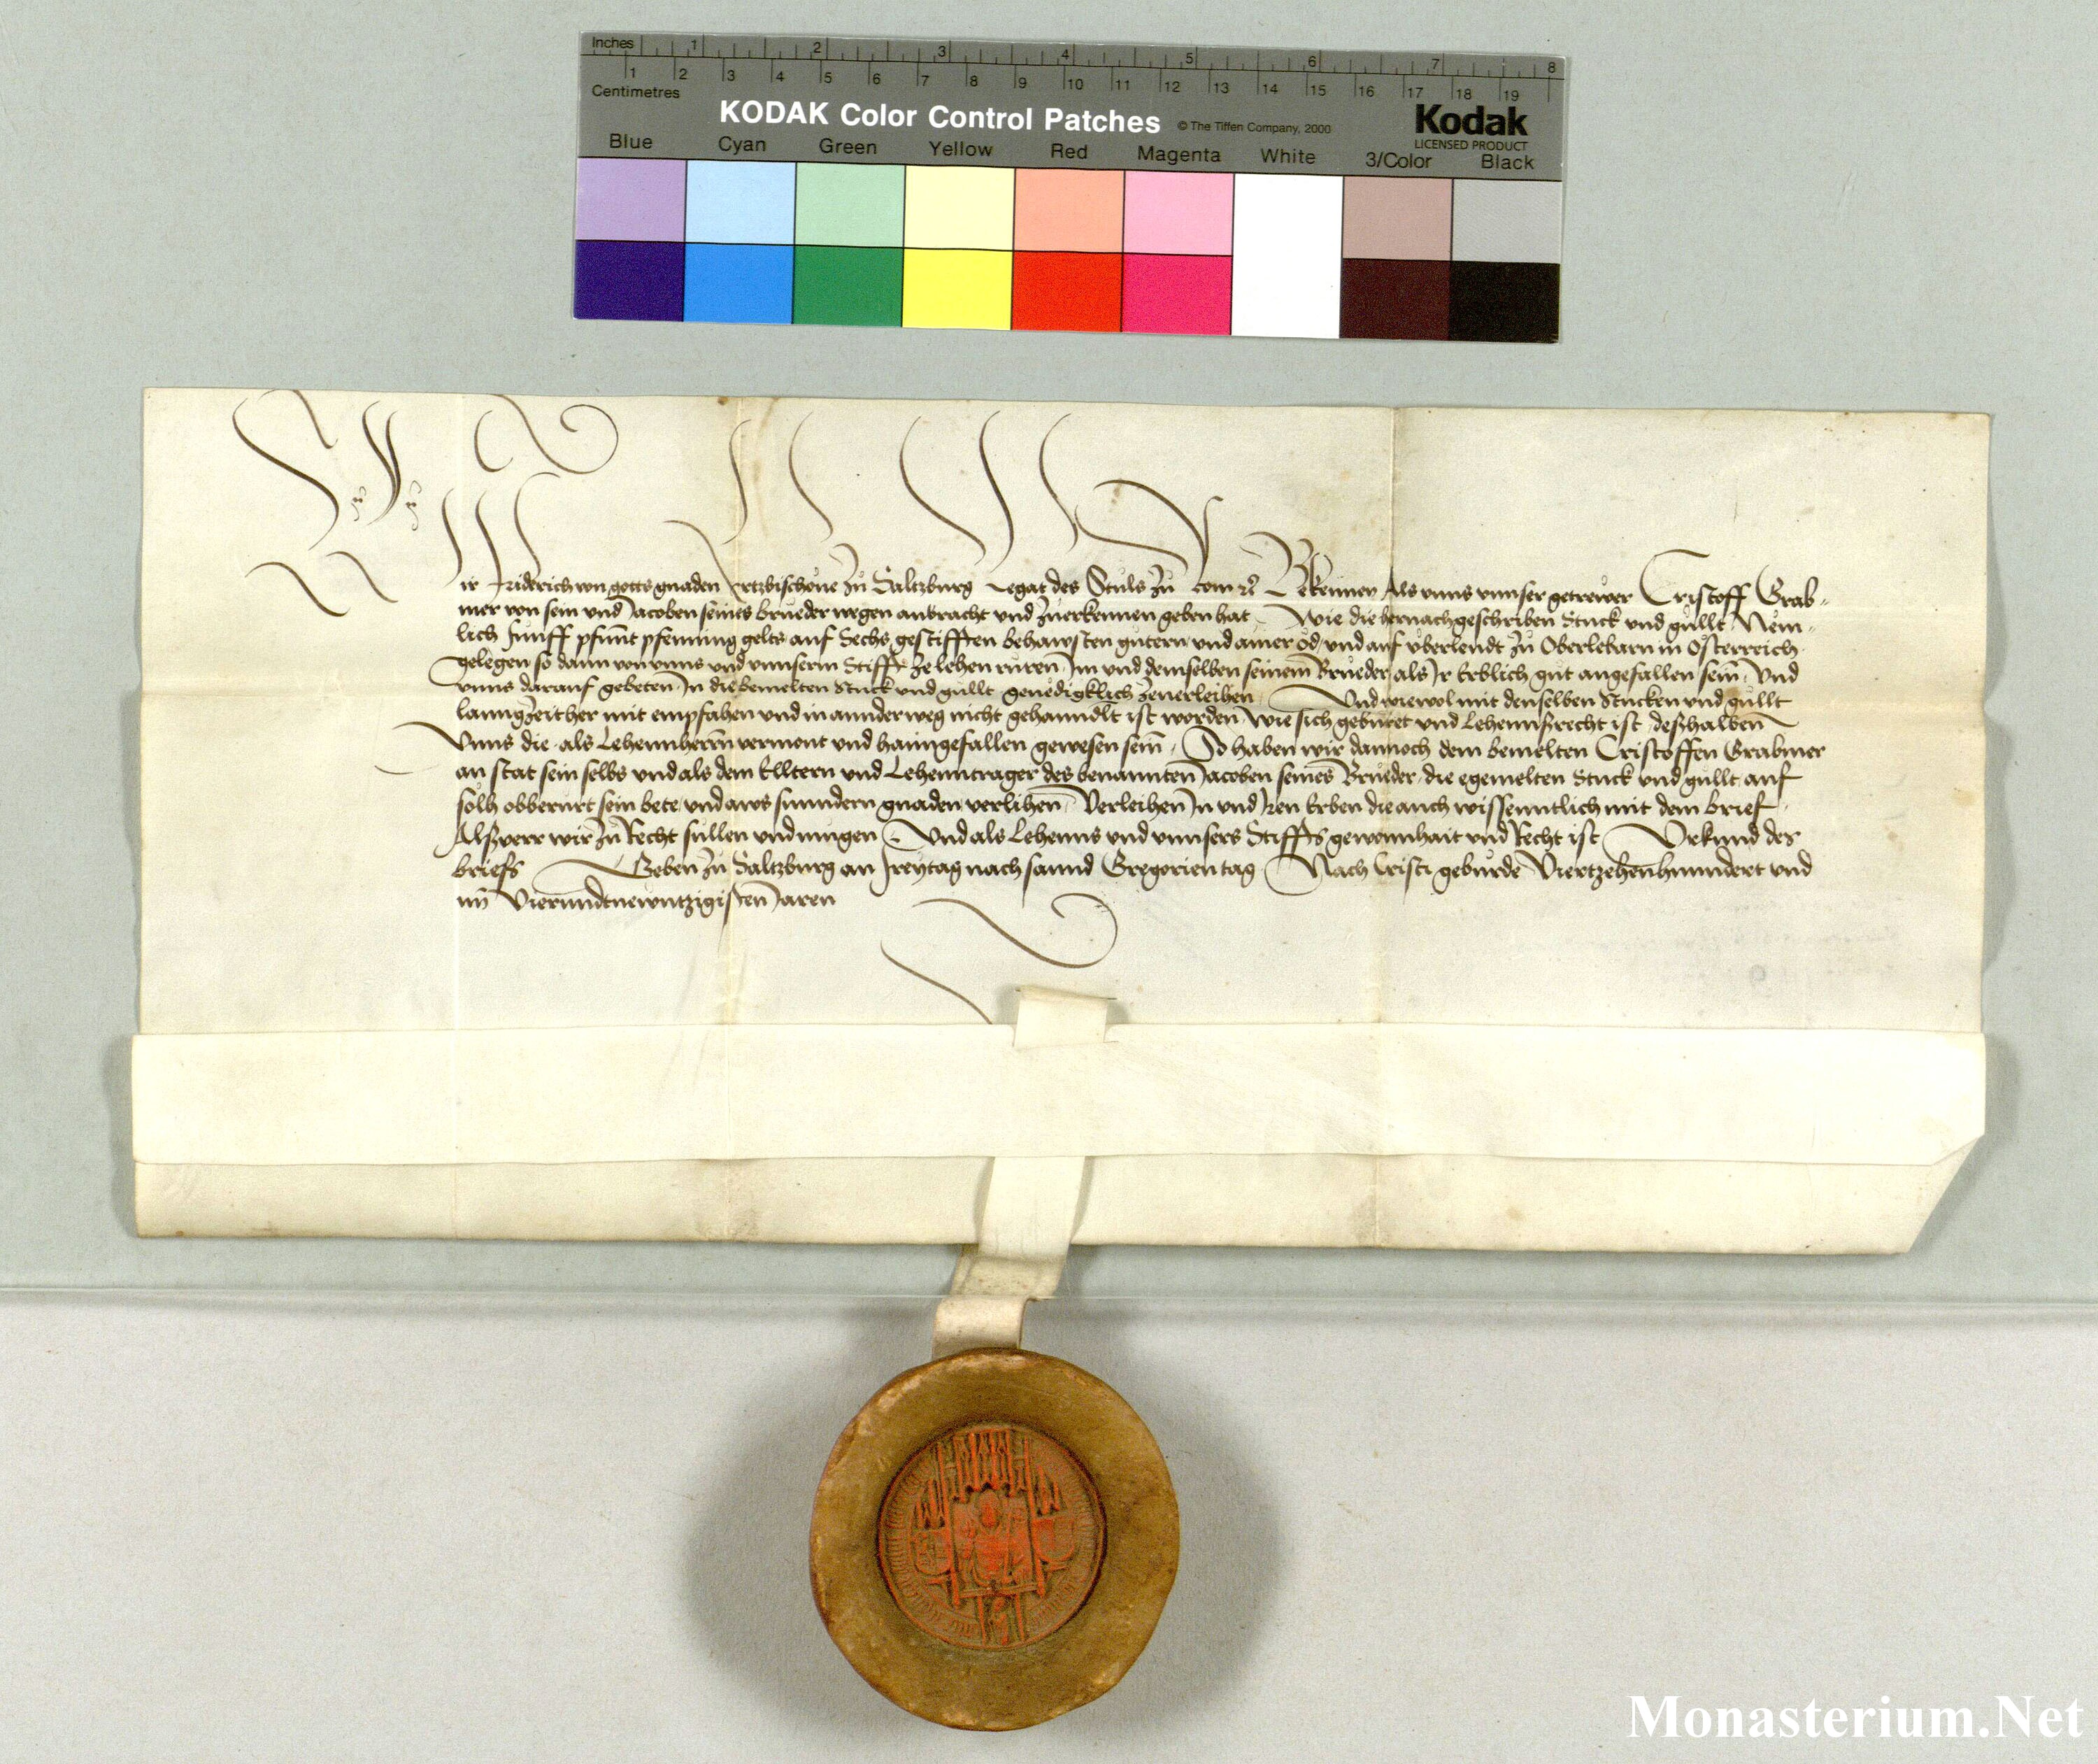 Inches 1 2 3 4 5 6 7 8
1 2 3 4 5 6 7 8 9 10 11 12 13 14 15 16 17 18 19
Centimetres
KODAK Color Control Patches © The Tiffen Company, 2000 Kodak
LICENSED PRODUCT
Blue Cyan Green Yellow Red Magenta White 3/Color Black
Wir Friderich von gotts gnaden Ertzbischoue zů Saltzburg Legat des Stůls zů Rom ꝛc̃ Bekennen Als vnns vnnser getrewer Cristoff Grab„
mer von sein und Jacoben seines brueder wegen anbracht und zuerkennen geben hat, Wie die hernachgeschriben Stuck und gullt, Nem„
lich funff pfunt pfenning gelts auf Sechs gestifften behawsten gutern und ainer öd, und auf vberlendt zu Oberlebarn in Osterreich
gelegen so dann von vnns und vnnserm Stifft ze lehen ruren, Im und demselben seinem Brueder, als Ir Erblich gut angefallen sein̄, Und
vnns darauf gebeten, In die bemelten Stuck und gullt genedigklich zeuerleihen, Und wiewol mit denselben Stucken und gullt
lanngzeither mit empfahen und in annder weg nicht gehanndlt ist worden, wie sich geburet und Lehennsrecht ist, deshalben
Vnns die, als Lehennherrn vermont und haimgefallen gewesen sein̄, So haben wir dannoch dem bemelten Cristoffen Grabmer
an stat sein selbs und als dem Elltern und Lehenntrager des benannten Jacoben seines Brueder, die egemelten Stuck und gullt, auf
solh obberurt sein bete, und aws sunndern gnaden verlihen, Verleihen In und Iren Erben die auch wissenntlich mit dem brief,
Alsuerr wir zu Recht sullen und mugen, Und als Lehenns und vnnsers Stiffts gewonnhait und Recht ist, Vrkund des
briefs Geben zu Saltzburg an Freytag nach sannd Gregorien tag, Nach Cristi geburde Viertzehenhunndert und
im̄ Vierundtnewntzigisten Jaren
Monasterium.Net